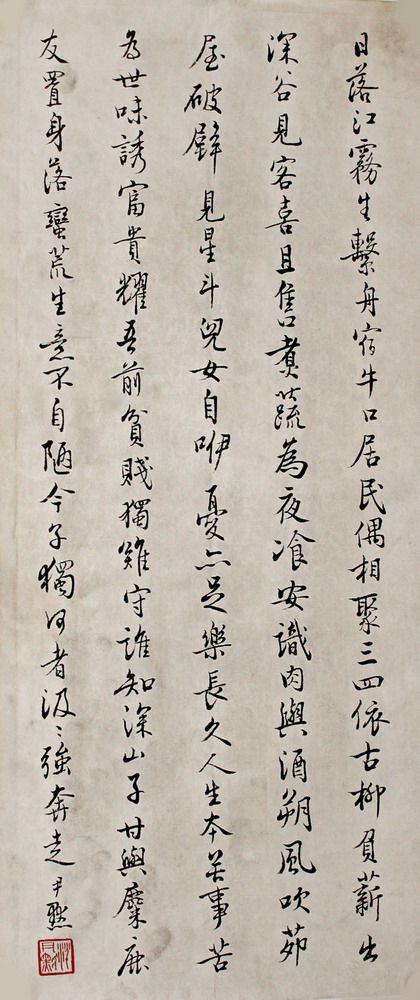 日落江霧生繫舟宿牛口居民偶相聚三四依古柳負薪出
深谷見客喜且售煑蔬為夜飡安識肉與酒朔風吹茆
屋破壁見星斗兒女自咿憂亦足樂長久人生本无事苦
為世味誘富貴耀吾前貧賤獨難守誰知深山子甘與麋鹿
友置身落蠻荒生意不自陋今予獨何者汲〻強奔走尹默